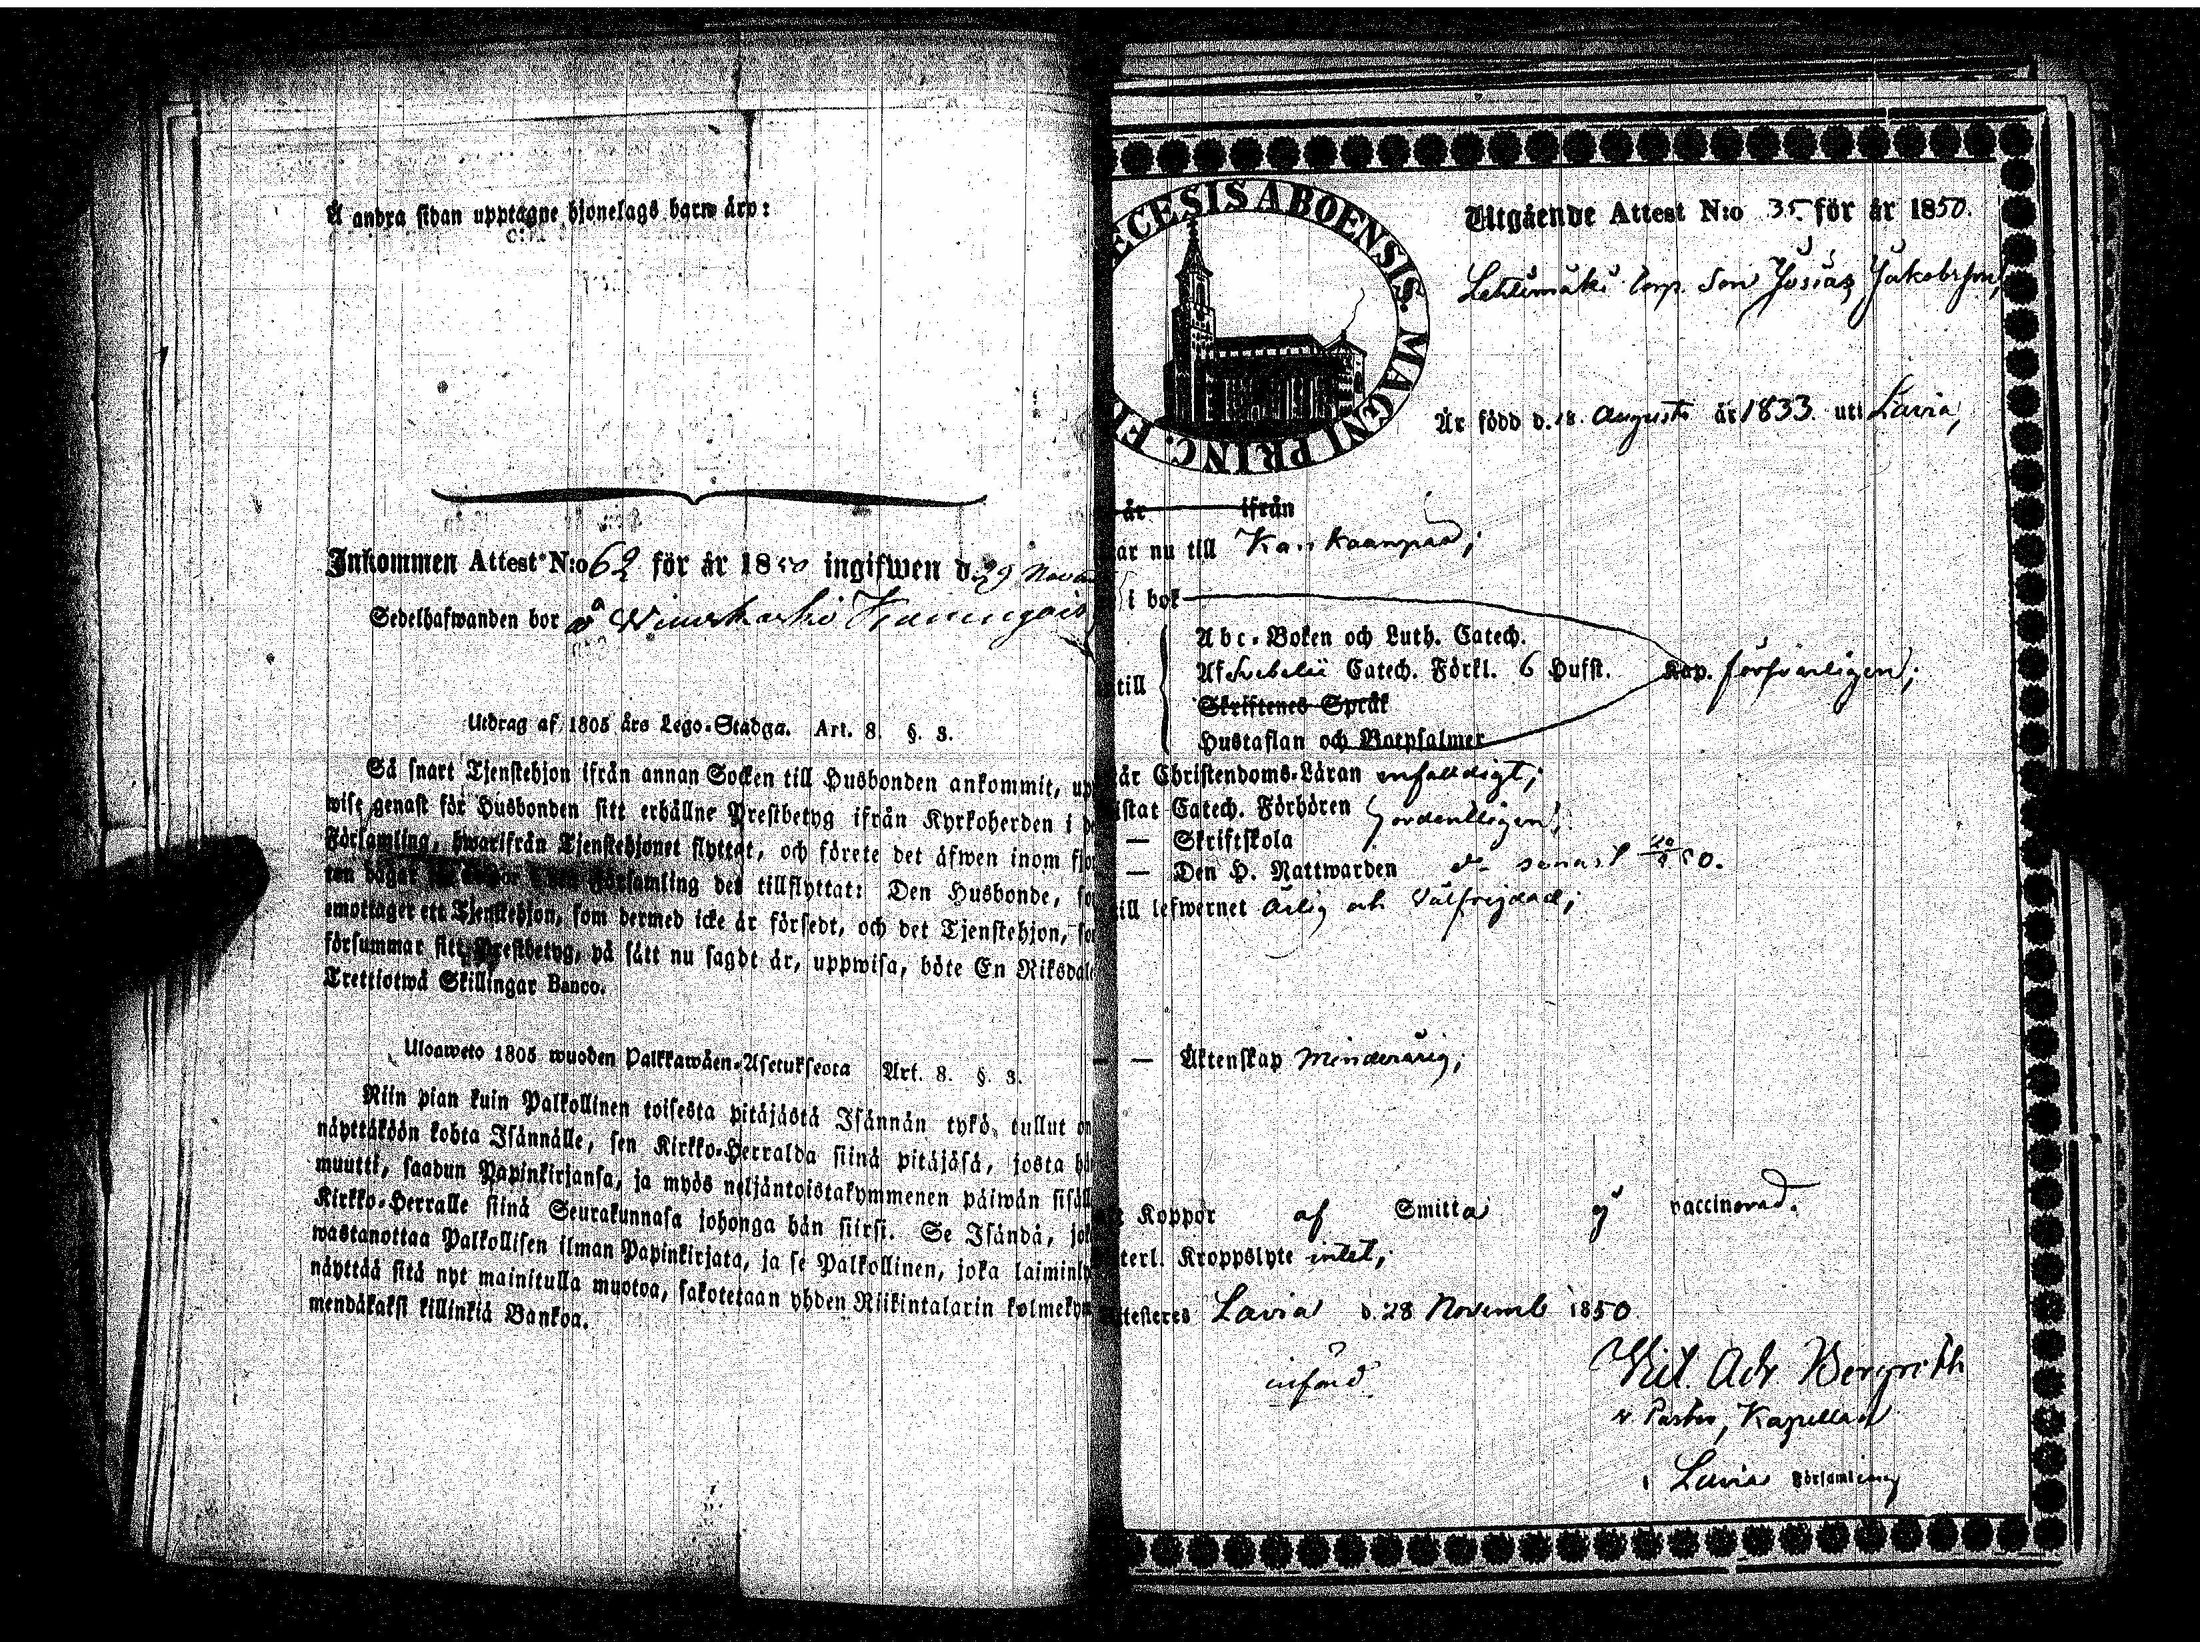 Å andra sidan upptagne hjonelags barn äro:
Inkommen Attest N:o 62 för år 1850 ingifwen d. 29 Novem
Sedelhafwanden bor å
Utdrag af 1805 års Lego-Stadga. Art. 8. §. 3.
Så snart Tjenstehjon ifrån annan Socken till Husbonden ankommit, upp
wise genast för Husbonden sitt erhållne Prestbetyg ifrån Kyrkoherden i de
Församling, hwarifrån Tjenstehjonet flyttat, och förete det äfwen inom fjor
ton dagar Församling det tillflyttat: Den Husbonde, so
emottager ett Tjenstehjon, som dermed icke är försedt, och det Tjenstehjon, so
försummar sitt Prestbetyg, på sätt nu sagdt är, uppwisa, böte En Riksdale
Trettiotwå Skillingar Banco.
Ulosweto 1805 wuoden Palkkawäen-Asetuksesta Art. 8. §. 3.
Niin pian kuin Palkollinen toisesta pitäjästä Isännän tykö tullut on
näyttäköön kohta Isännälle, sen Kirkko-Herralda siinä pitäjäsä, josta hän
muutti, saadun Papinkirjansa, ja myös neljäntoistakymmenen päiwän sisäll
Kirkko-Herralle siinä Seurakunnasa johonga hän siirsi. Se Isändä, jok
wastanottaa Palkollisen ilman Papinkirjata, ja se Palkollinen, joka laiminly
näyttää sitä nyt mainitulla muotoa, sakotetaan yhden Riikintalarin kolmekym
mendäkaksi killinkiä Bankoa.
ECESIS ABOENSIS. MAGNI PRINC. FI
Utgående Attest N:o 35. för år 1850.
Lehtimäki torp. Son Josias Jakobsson,
Är född d. 18. Augusti år 1833. uti Lavia,
är ifrån
ar nu till Kankaanpää;
i bok
Abc-Boken och Luth. Catech.
till Af Svebelii Catech. Förkl. 6 Hufst. Kap. försvarligen;
Skriftenes Språk
Hustaflan och Botpsalmer
år Christendoms-Läran enfaldigt;
istat Catech. Förhören
— Skriftskola ordentligen;
— Den H. Nattwarden do senast 20/8 50.
till lefwernet ärlig och välfrejdad;
— — Äktenskap Minderårig;
Koppor af Smitta ej vaccinerad.
terl. Kroppslyte intet;
ttesteres Lavia d. 28 Novemb 1850
införd.
Vil. Adr Bergroth
v Pastor, Kapellan
i Lavia Församling